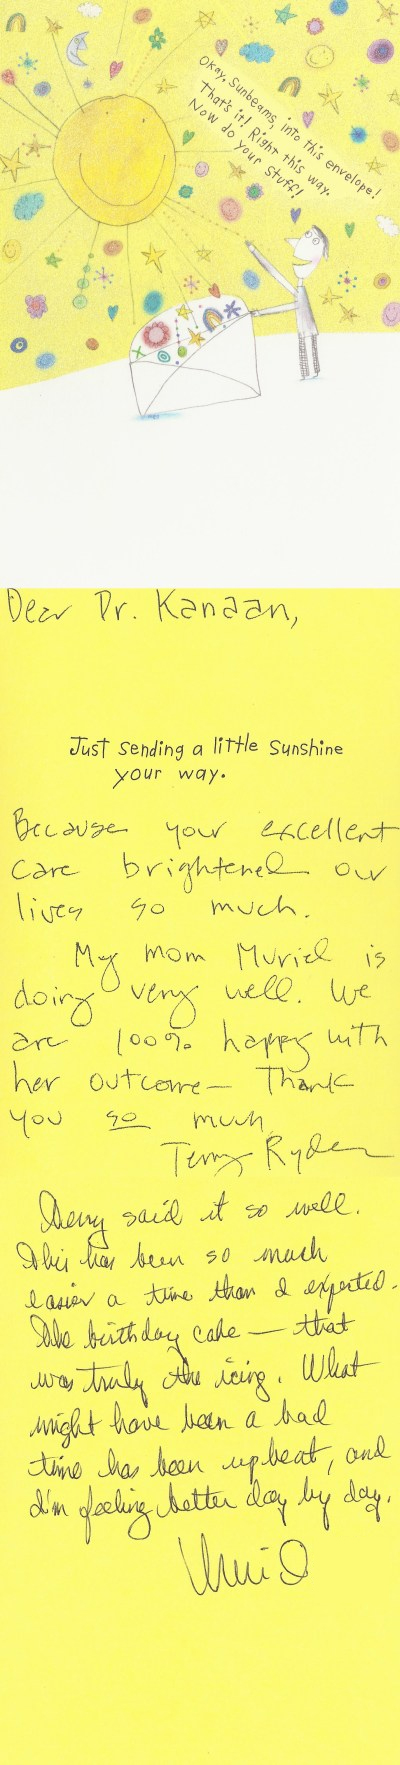 Okay, Sunbeams, into this envelope!
That's it! Right this way.
Now do your stuff!
Dear Dr. Kanaan,
Just sending a little sunshine
your way.
Because your excellent
care brightened our
lives so much.
My mom Muriel is
doing very well. We
are 100% happy with
her outcome— Thank
you so much
Terry Ryder
Terry said it so well.
This has been so much
easier a time than I expected.
The birthday cake — that
was truly the icing. What
might have been a bad
time has been upbeat, and
I'm feeling better day by day.
Muriel